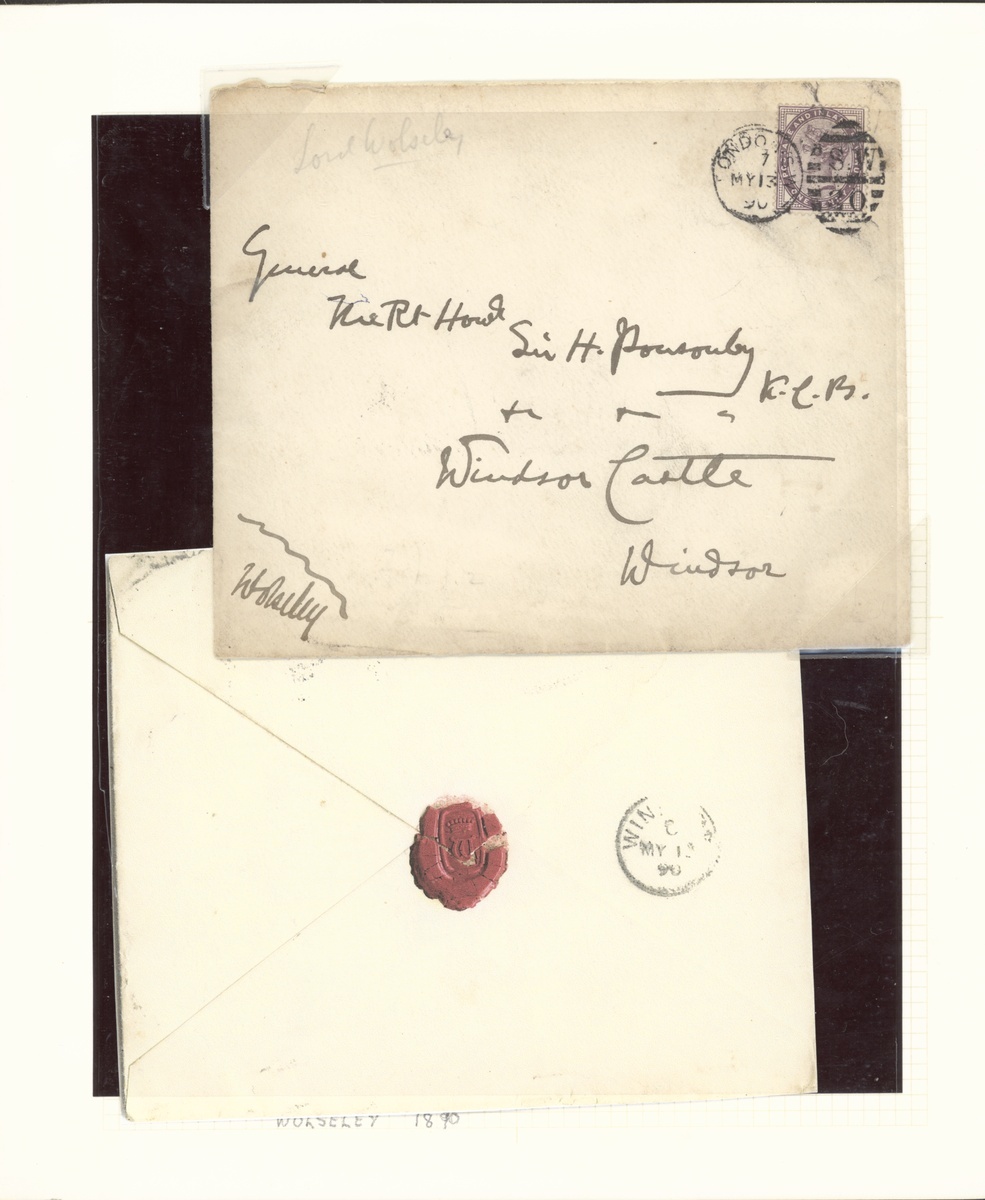 Lord Wolseley
LONDON S.W
7
MY 13
90
S.W
General
The Rt Honble
Sir H. Ponsonby
K.C.B.
&c &c &c
Windsor Castle
Windsor
Wolseley
WIN
C
MY 13
90
WOLSELEY 1890